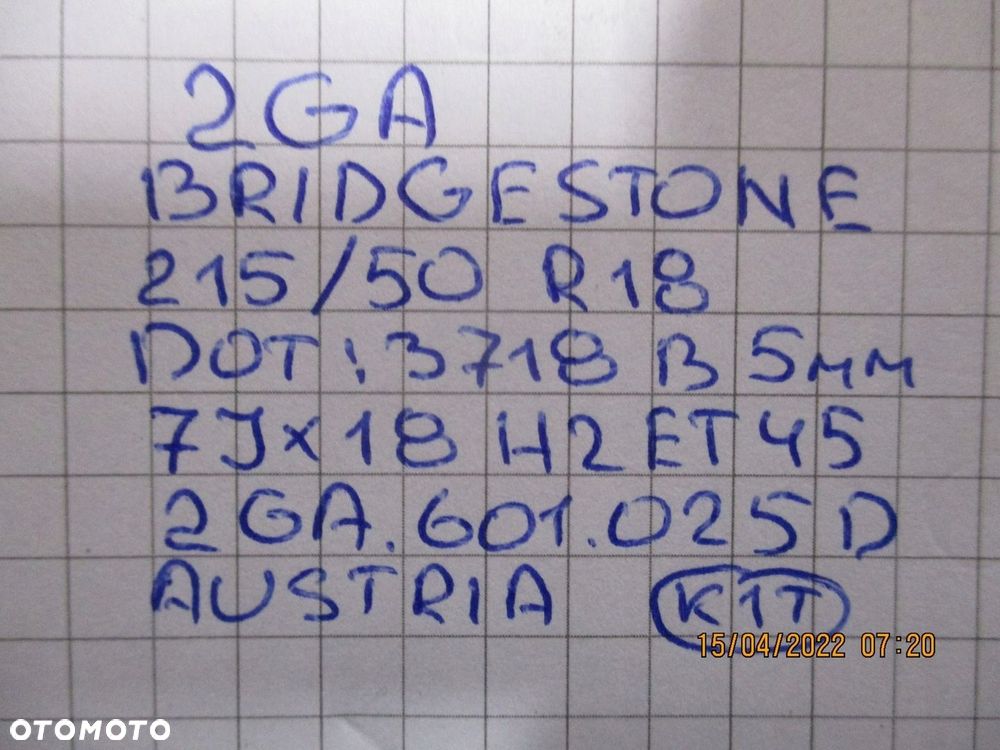 2GA
BRIDGESTONE
215/50 R18
DOT: 3718 B 5mm
7Jx18 H2 ET45
2GA.601.025D
AUSTRIA K1T
15/04/2022 07:20
OTOMOTO